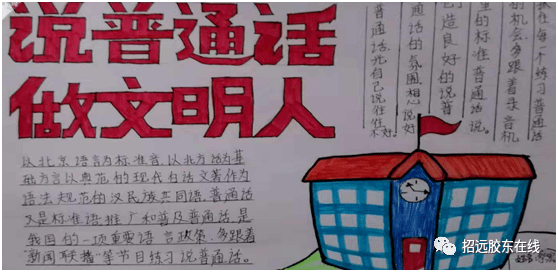 说普通话
做文明人
以北京语言为标准音,以北方话为基
础方言以典范的现代白话文著作为
语法规范的汉民族共同语,普通话
又是标准语推广和普及普通话,是
我国的一项重要语言政策.多跟着
新闻联播等节目练习说普通话。
每一个练习普通话
的机会,多跟着录音机
里的标准普通话说。
造良好的说普
通话的氛围.相心说好
普通话,光自己说往往不好
招远胶东在线